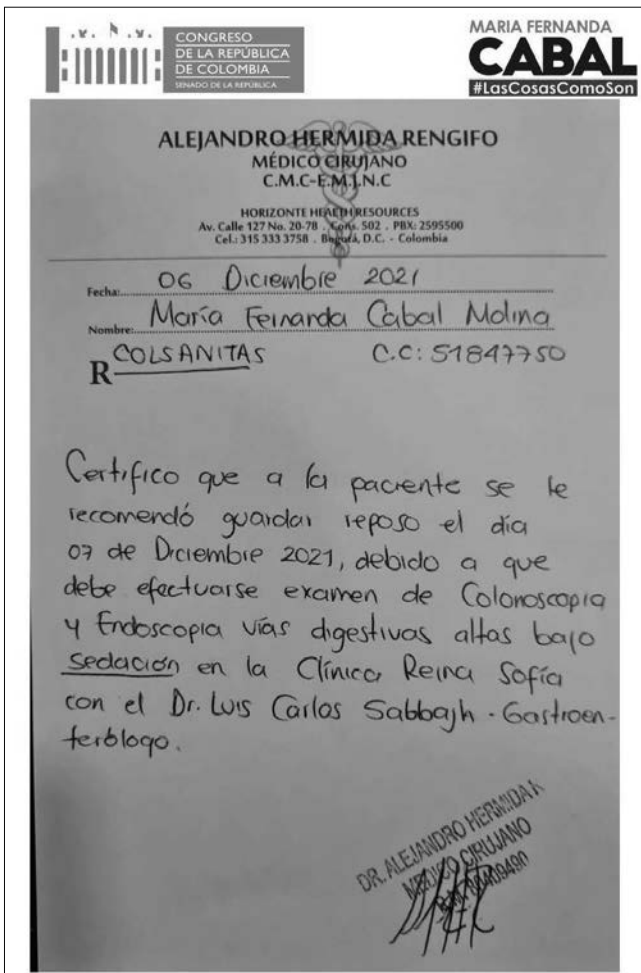 CONGRESO
DE LA REPÚBLICA
DE COLOMBIA
SENADO DE LA REPÚBLICA
MARIA FERNANDA
CABAL
#LasCosasComoSon
ALEJANDRO HERMIDA RENGIFO
MÉDICO CIRUJANO
C.M.C-E.M.J.N.C
HORIZONTE HEALTH RESOURCES
Av. Calle 127 No. 20-78 . Cons. 502 . PBX: 2595500
Cel.: 315 333 3758 . Bogotá, D.C. - Colombia
Fecha: 06 Diciembre 2021
Nombre: María Fernanda Cabal Molina
R COLSANITAS C.C: 51847750
Certifico que a la paciente se le
recomendó guardar reposo el día
07 de Diciembre 2021, debido a que
debe efectuarse examen de Colonoscopia
y Endoscopia vías digestivas altas bajo
sedación en la Clínica Reina Sofía
con el Dr. Luis Carlos Sabbajh - Gastroen-
terólogo.
DR. ALEJANDRO HERMIDA R
MEDICO CIRUJANO